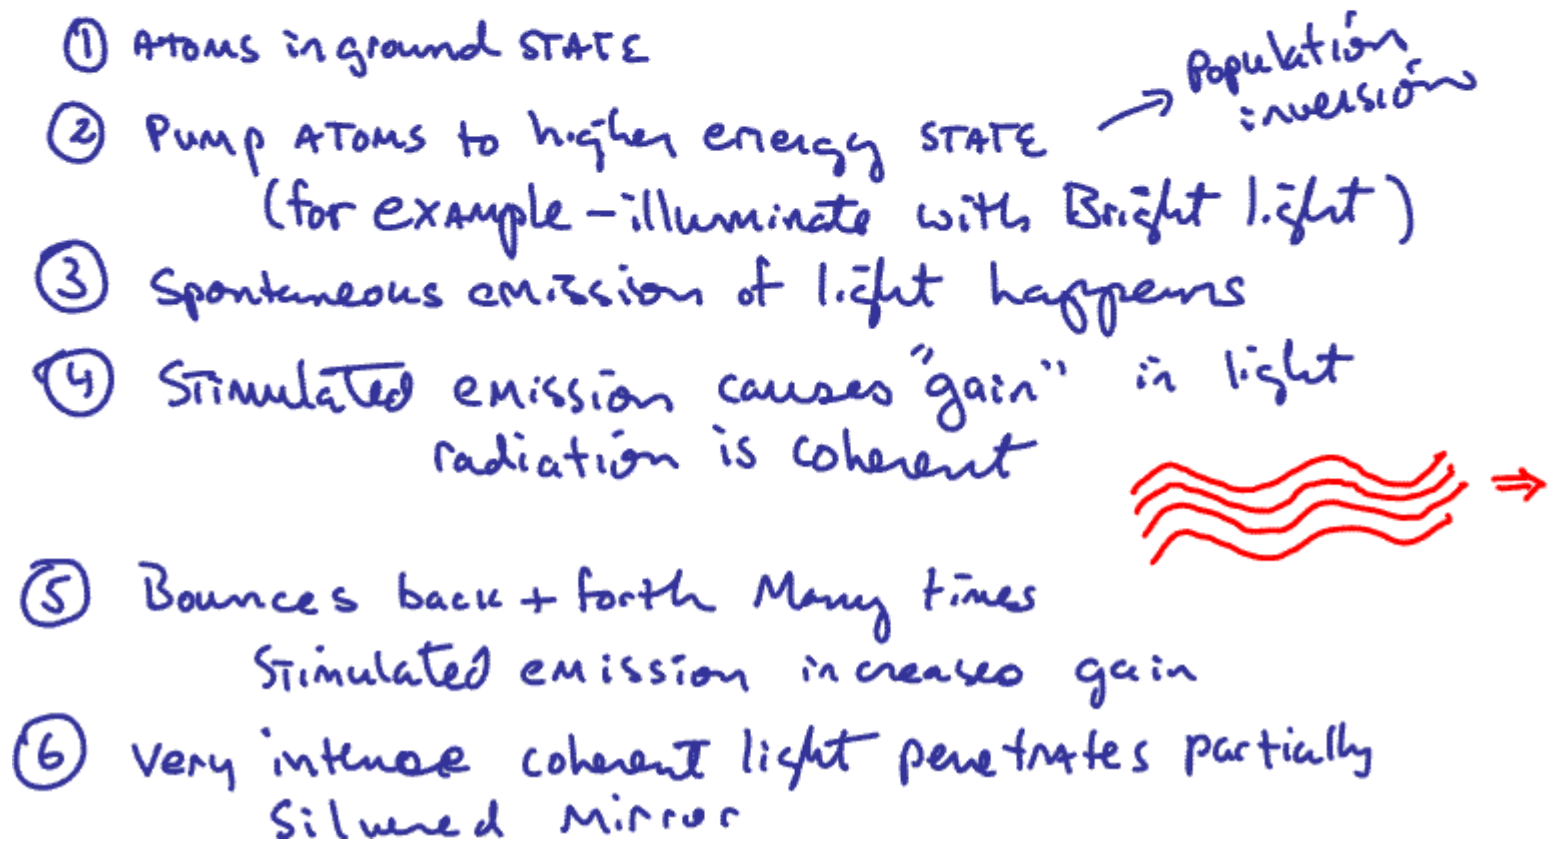 ① Atoms in ground STATE
② Pump ATOMS to higher energy STATE → Population inversion
(for example - illuminate with Bright light)
③ Spontaneous emission of light happens
④ Stimulated emission causes "gain" in light
radiation is coherent
⑤ Bounces back + forth Many times
Stimulated emission increases gain
⑥ Very intense coherent light penetrates partially
Silvered Mirror